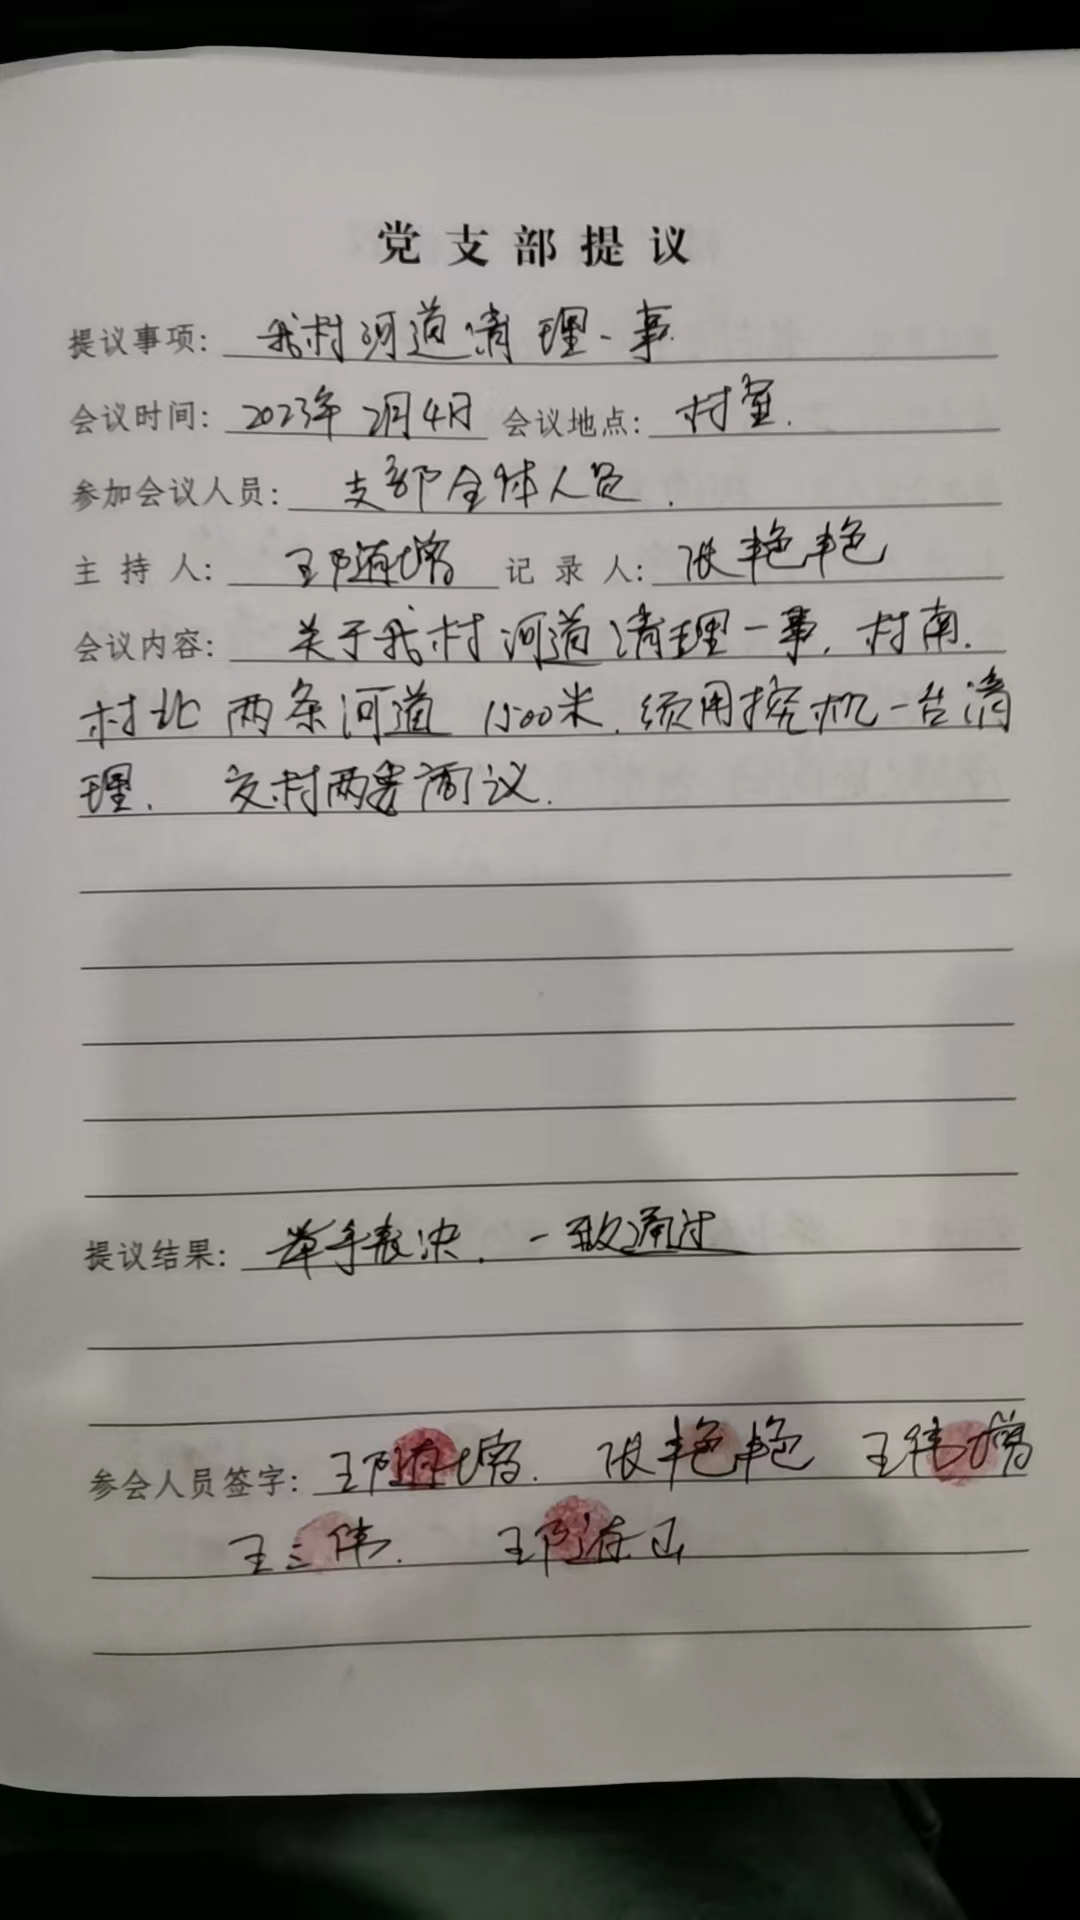 党支部提议
提议事项: 我村河道清理一事
会议时间: 2023年2月4日 会议地点: 村室.
参加会议人员: 支部全体人员.
主持人: 王随增 记录人: 张艳艳
会议内容: 关于我村河道清理一事, 村南.
村北两条河道1500米. 须用挖机一台清
理. 交村两委商议.
提议结果: 举手表决. 一致通过
参会人员签字: 王随增. 张艳艳 王伟增
王三伟. 王随正